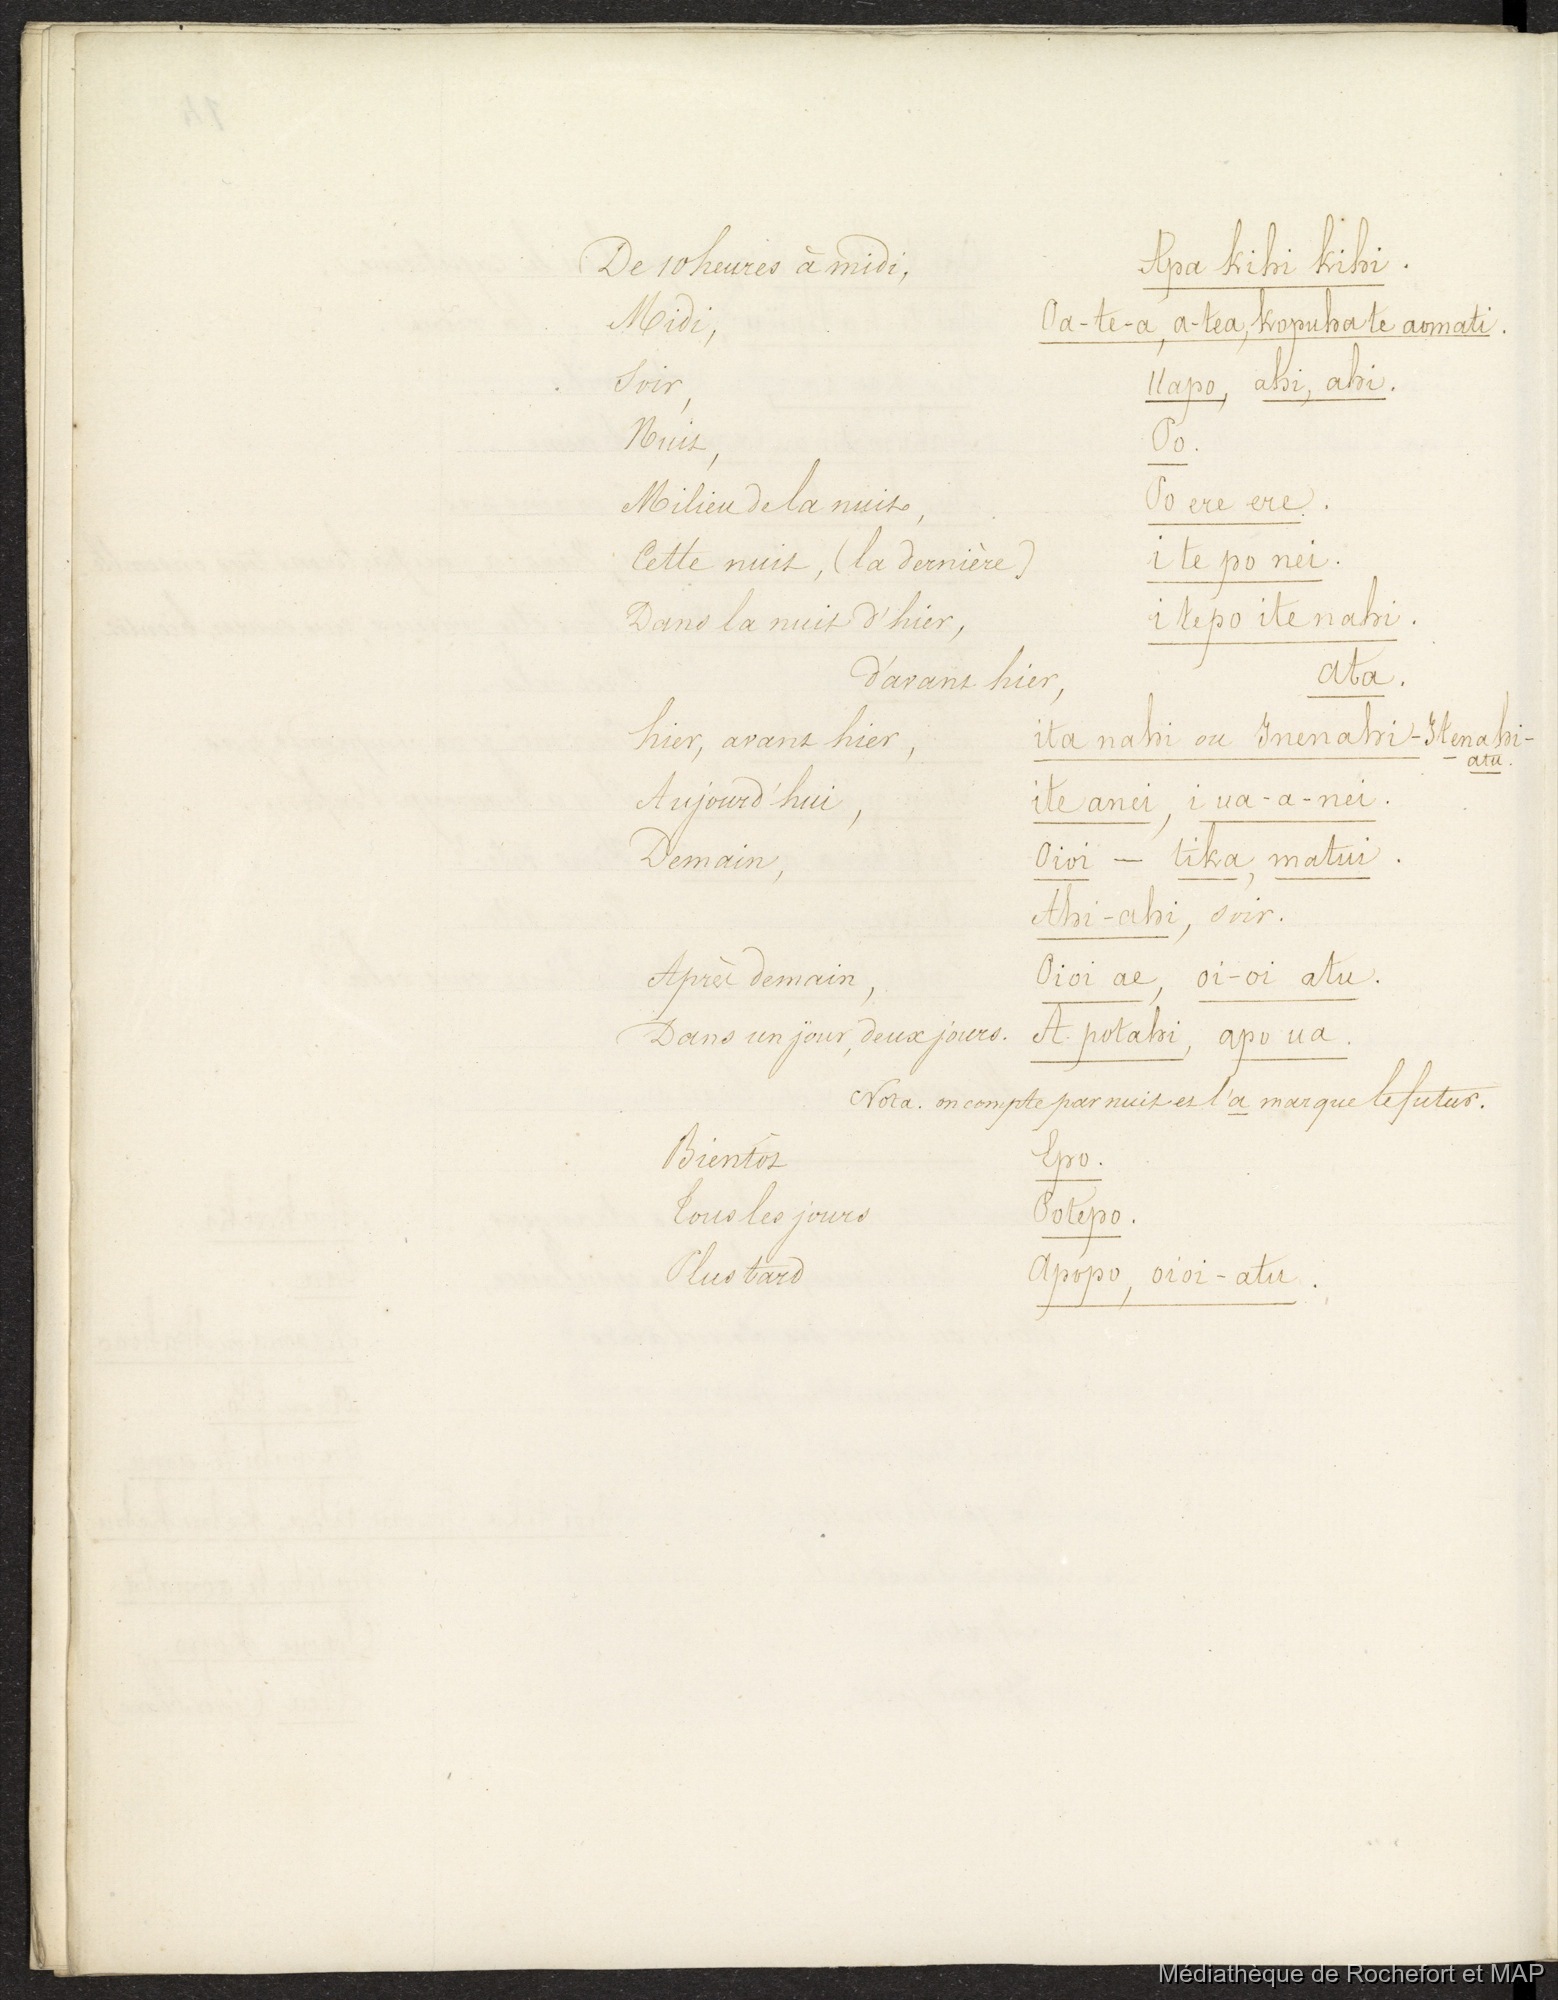 De 10 heures à midi, Apa kihi kihi.
Midi, Oa-te-a, a-tea, kopuha te aomati.
Soir, Uapo, ahi, ahi.
Nuit, Po.
Milieu de la nuit, Po ere ere.
Cette nuit, (la dernière) i te po nei.
Dans la nuit d'hier, i te po ite nahi.
d'avant hier, ata.
hier, avant hier, ita nahi ou Inenahi-Itenahi-
atu.
Aujourd'hui, ite anei, i ua-a-nei.
Demain, Oioi — tika, matui.
Ahi-ahi, soir.
Après demain, Oioi ae, oi-oi atu.
Dans un jour, deux jours. A potahi, apo ua.
Nota. on compte par nuit et l'a marque le futur.
Bientôt Epo.
Tous les jours Potepo.
Plus tard Apopo, oioi-atu.
Médiathèque de Rochefort et MAP